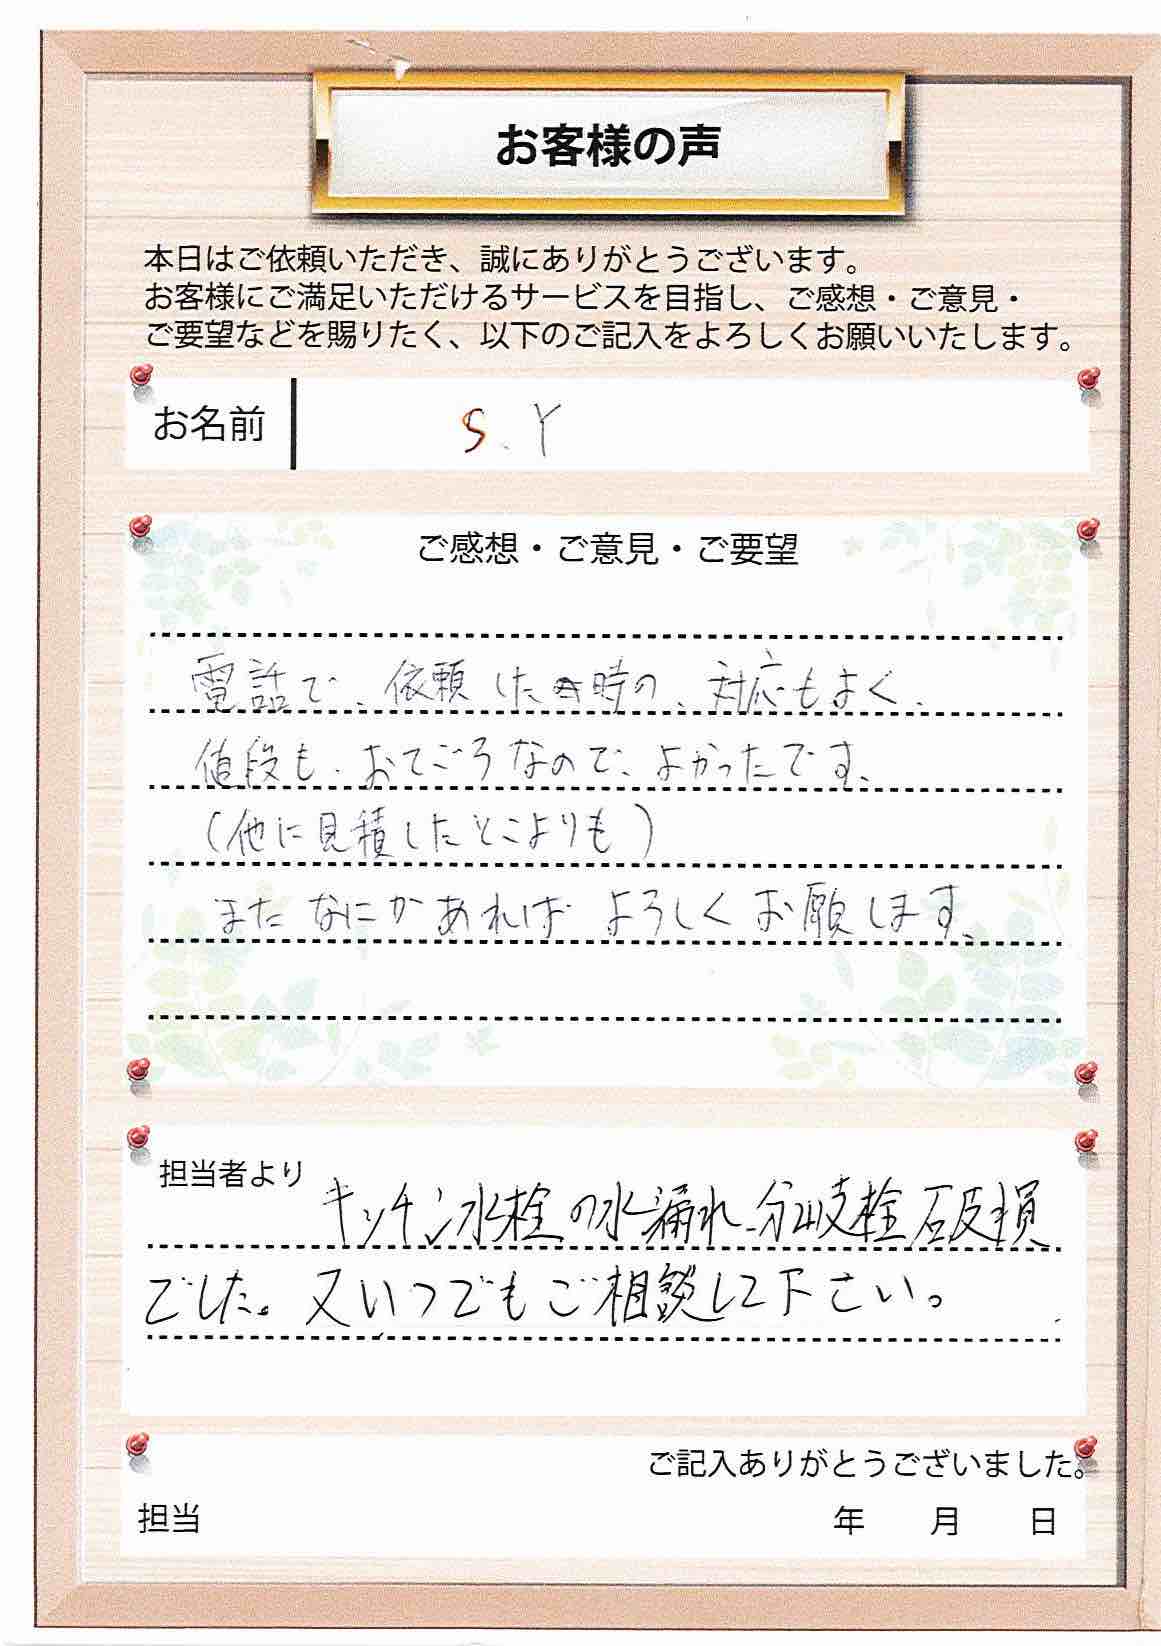 お客様の声
本日はご依頼いただき、誠にありがとうございます。
お客様にご満足いただけるサービスを目指し、ご感想・ご意見・
ご要望などを賜りたく、以下のご記入をよろしくお願いいたします。
お名前 S.Y
ご感想・ご意見・ご要望
電話で、依頼した時の、対応もよく、
値段も、おてごろなので、よかったです、
(他に見積したとこよりも)
またなにかあれば よろしくお願します、
担当者より キッチン水栓の水漏れ、分岐栓破損
でした。又いつでもご相談して下さい。
ご記入ありがとうございました。
担当 年 月 日